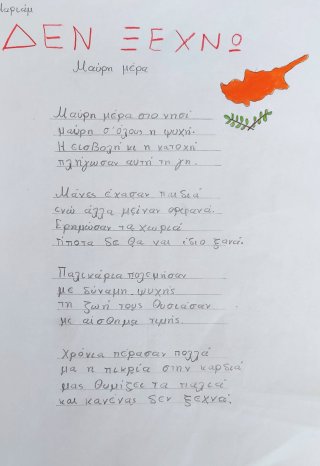 Μαριάμ
ΔΕΝ ΞΕΧΝΩ
Μαύρη μέρα
Μαύρη μέρα στο νησί
μαύρη σ' όλους η ψυχή.
Η εισβολή κι η κατοχή
πλήγωσαν αυτή τη γη.
Μάνες έχασαν παιδιά
ενώ άλλα μείναν ορφανά.
Ερήμωσαν τα χωριά
τίποτα δε θα ναι ίδιο ξανά.
Παλικάρια πολεμήσαν
με δύναμη ψυχής
τη ζωή τους θυσιάσαν
με αίσθημα τιμής.
Χρόνια πέρασαν πολλά
μα η πικρία στην καρδιά
μας θυμίζει τα παλιά
και κανένας δεν ξεχνά.